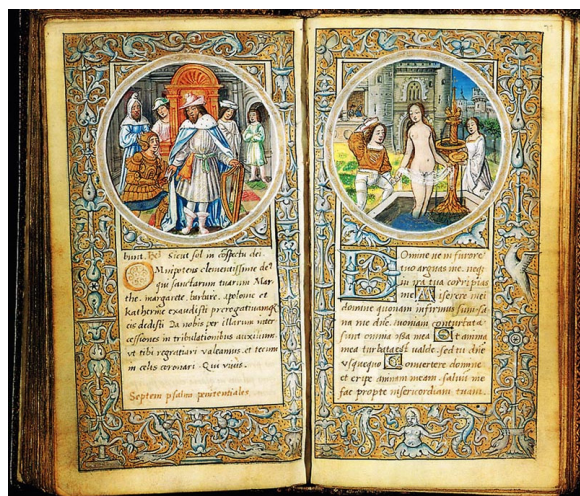 bunt. Sicut sol in cōspectu dei.
OMnipotens clemētissime deꝰ
qui sanctarum tuarum Mar
the. margarete, barbare, apolonie et
katherine exaudisti prerogatiuamqȝ
eis dedisti Da nobis per illarum inter
cessiones in tribulationibus auxilium.
vt tibi regratiari valeamus. et tecum
in celis coronari. Qui viuis.
Septem psalmi penitentiales
DOmine ne in furore
tuo arguas me. neqȝ
in ira tua corripias
me Miserere mei
domine quoniam infirmus sum. sa
na me dñe. quoniam conturbata
sunt omnia ossa mea Et anima
mea turbata est valde. sed tu dñe
vsquequo Conuertere domine
et eripe animam meam. saluū me
fac propter misericordiam tuam.